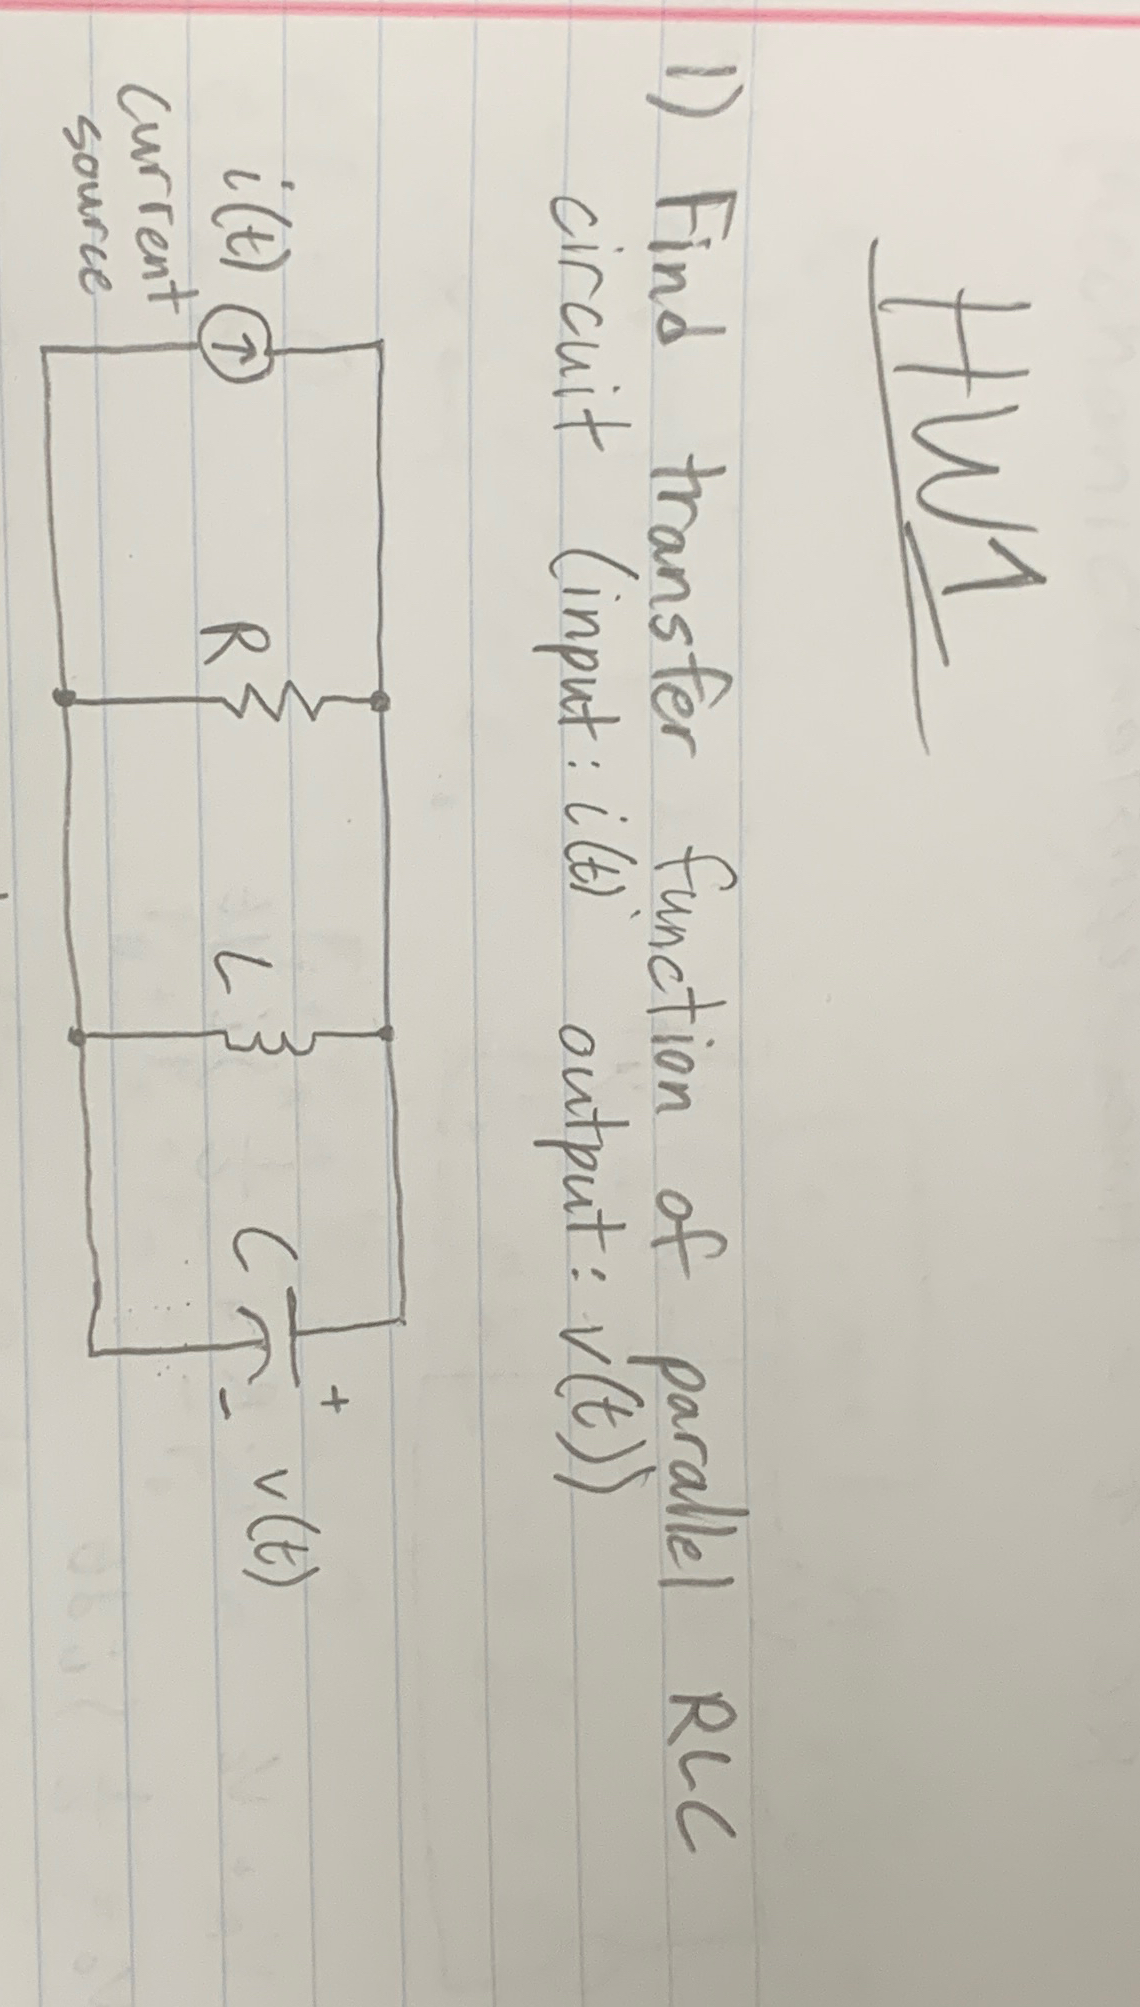 HW1
1) Find transfer function of parallel RLC
circuit (input: i(t) output: v(t))
i(t)
current
source
R
L
C
+
-
v(t)